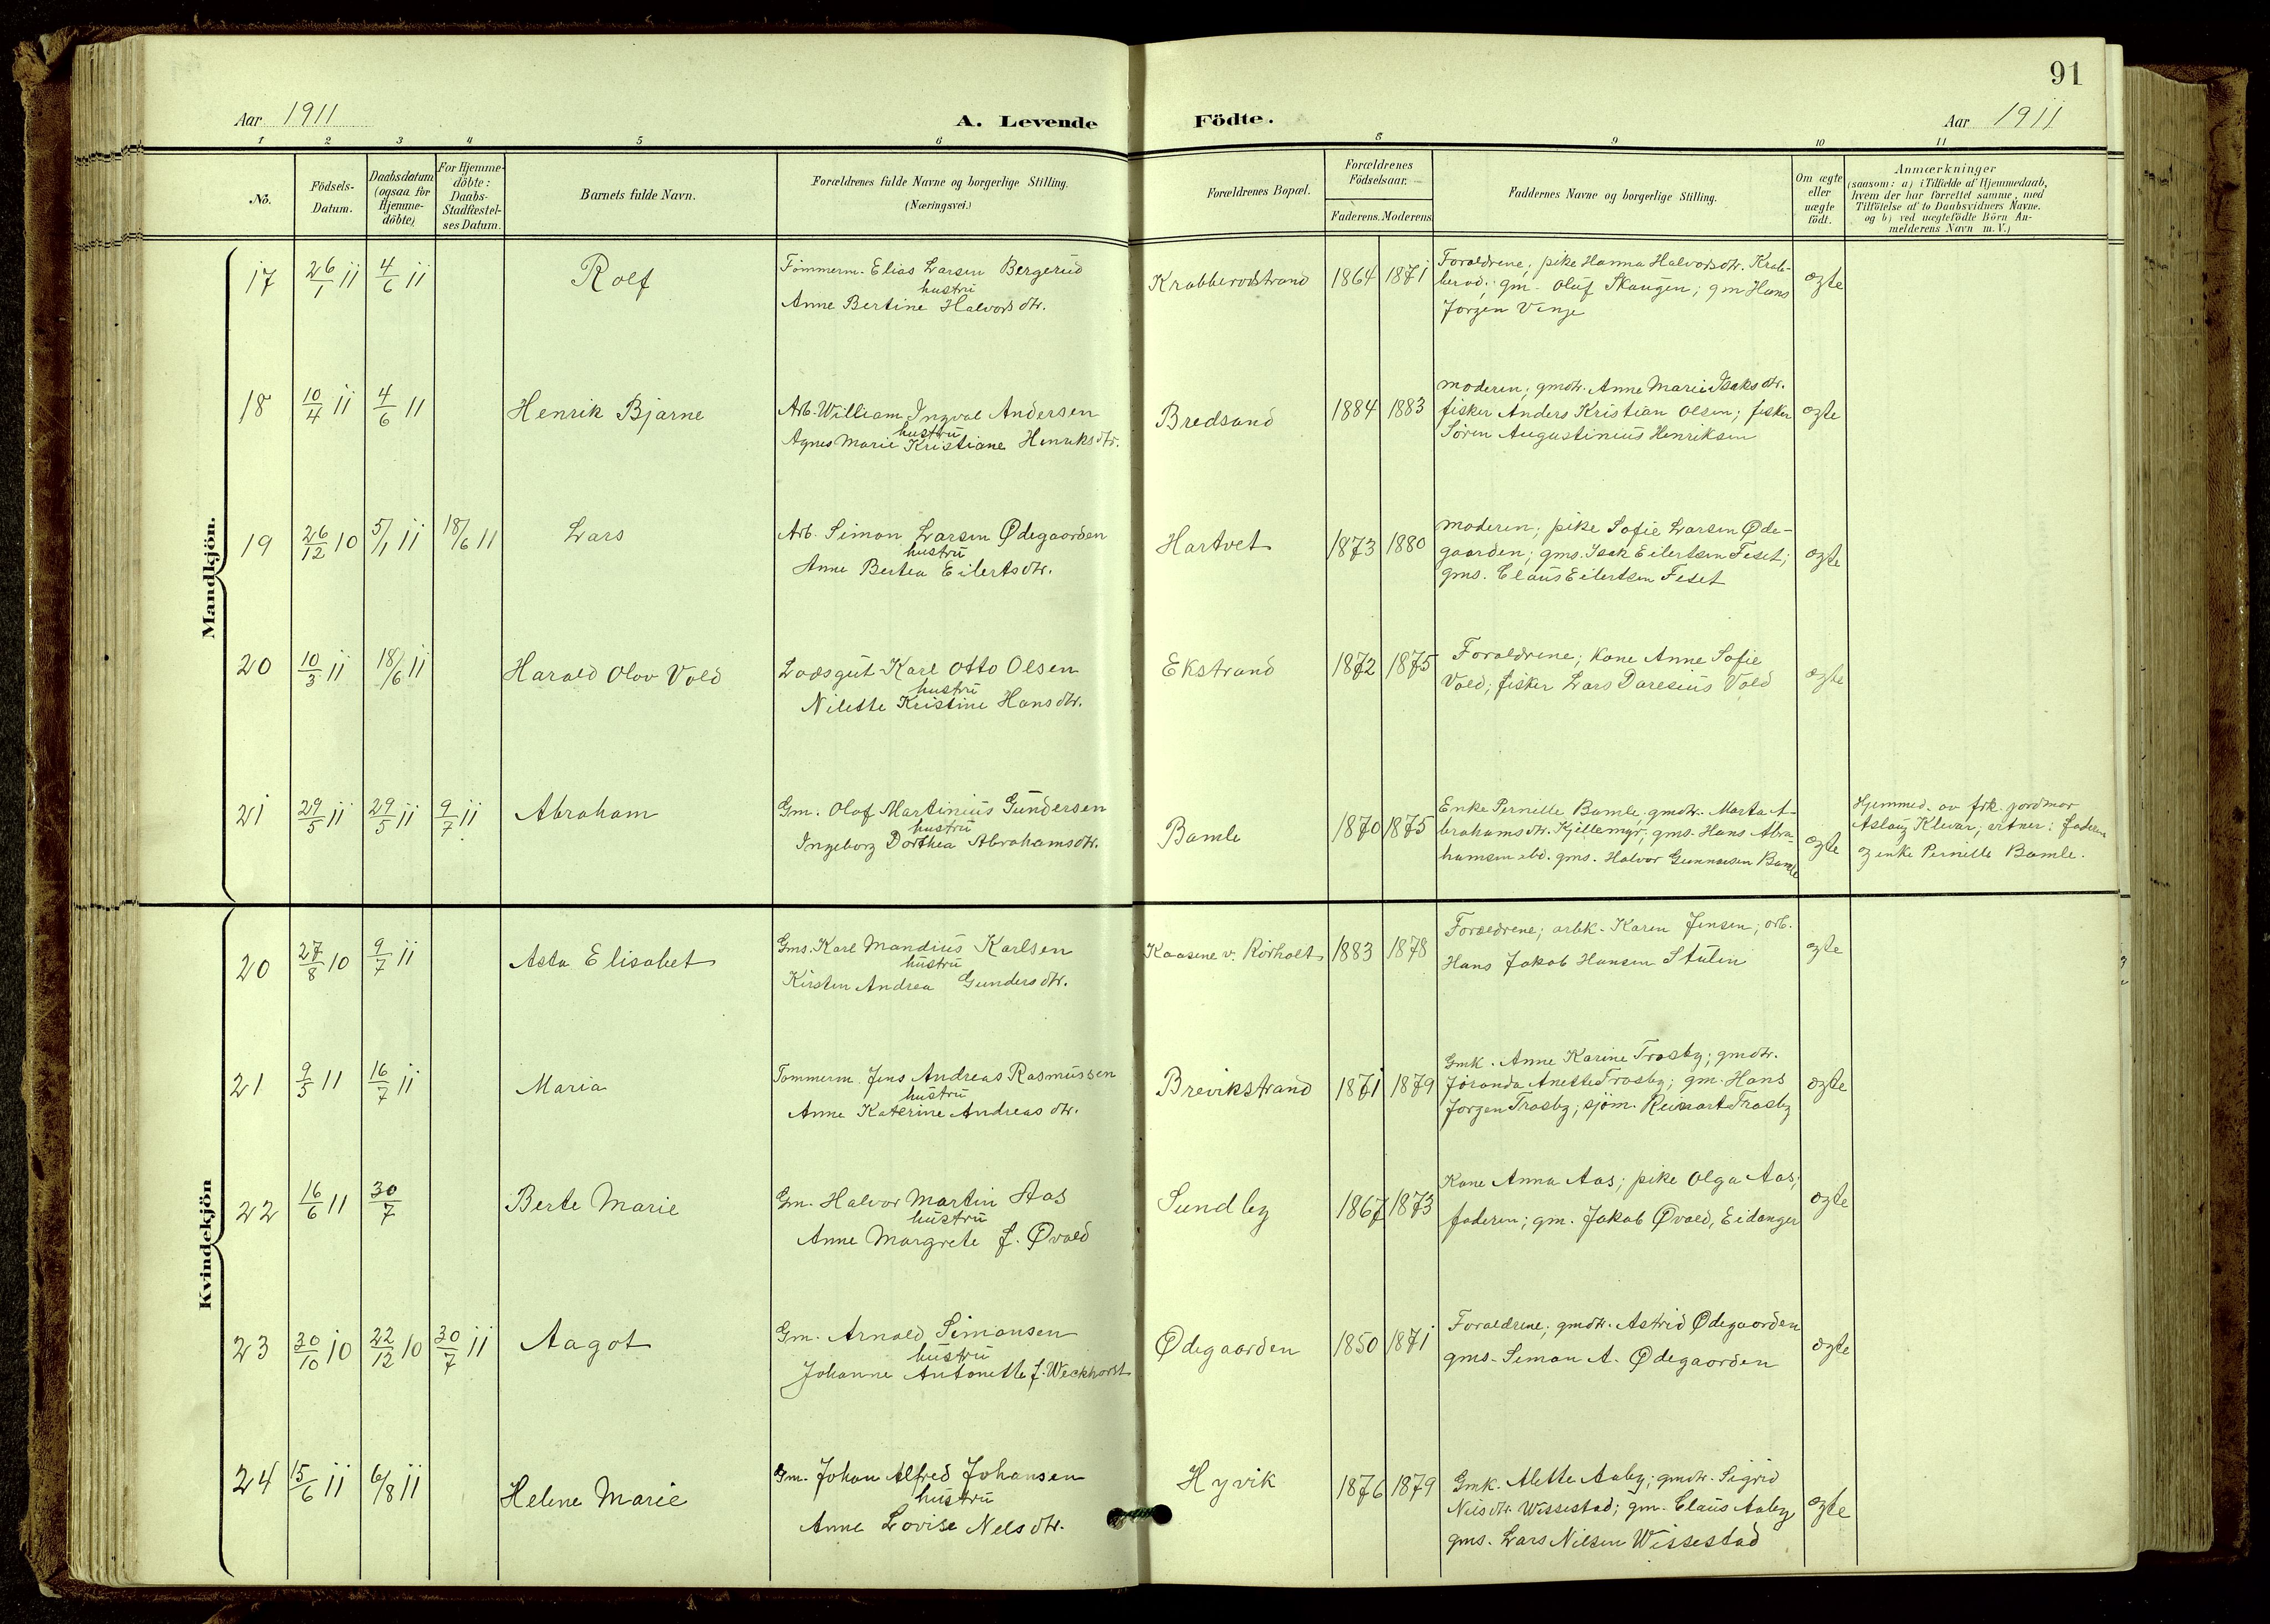 91
Aar 1911 A. Levende Födte. Aar 1911
1 2 3 4 5 6 8 9 10 11
No.
Födsels-
Datum.
Daabsdatum
(ogsaa for
Hjemme-
döbte)
For Hjemme-
döbte:
Daabs-
Stadfæstel-
ses Datum.
Barnets fulde Navn.
Forældrenes fulde Navne og borgerlige Stilling.
(Næringsvei.)
Forældrenes Bopæl.
Forældrenes
Födselsaar.
Faderens. Moderens
Faddernes Navne og borgerlige Stilling.
Om ægte
eller
uægte
födt.
Anmærkninger
(saasom: a) i Tilfælde af Hjemmedaab,
hvem der har forrettet samme, med
Tilföielse af to Daabsvidners Navne.
og b) ved uegtefödte Börn An-
melderens Navn m.V.)
Mandkjön.
17 26/1 11 4/6 11 Rolf
Tømmerm. Elias Larsen Bergerud
hustru
Anne Bertine Halvorsdtr.
Krabberødstrand 1864 1871
Forældrene; pike Hanna Halvorsdtr. Krab-
berød; gm. Oluf Skaugen; gm Hans
Jørgen Vinje
ægte
18 10/4 11 4/6 11 Henrik Bjarne
Arb. William Ingval Andersen
hustru
Agnes Marie Kristiane Henriksdtr.
Bredsand 1884 1883
moderen; gmdtr. Anne Marie Isaksdtr.
fisker Anders Kristian Olsen; fisker
Søren Augustinius Henriksen
ægte
19 26/12 10 5/1 11 18/6 11 Lars
Arb. Simon Larsen Ødegaarden
hustru
Anne Bertea Eilertsdtr.
Hartvet 1873 1880
moderen; pike Sofie Larsen Øde-
gaarden; gms. Isak Eilertsen Feset;
gms. Claus Eilertsen Feset
ægte
20 10/3 11 18/6 11 Harald Olov Vold
Lodsgut Karl Otto Olsen
hustru
Nilette Kristine Hansdtr.
Ekstrand 1872 1875
Forældrene; Kone Anne Sofie
Vold; fisker Lars Daresius Vold
ægte
21 29/5 11 29/5 11 9/7 11 Abraham
Gm. Olaf Martinius Gundersen
hustru
Ingeborg Dorthea Abrahamsdtr.
Bamle 1870 1875
Enke Pernille Bamle; gmdtr. Marta A-
brahamsdtr. Kjellemyr; gms. Hans Abra-
hamsen ibd. gms. Halvor Gunnarsen Bamle
ægte
Hjemmed. av frk. jordmor
Aslaug Klevar; vitner: faderen
og enke Pernille Bamle.
Kvindekjön
20 27/8 10 9/7 11 Asta Elisabet
Gms. Karl Mandius Karlsen
hustru
Kirsten Andrea Gundersdtr.
Kaasene v. Rørholt 1883 1878
Forældrene; arbk. Karen Jensen; arb.
Hans Jakob Hansen Stulen
ægte
21 9/5 11 16/7 11 Maria
Tømmerm. Jens Andreas Rasmussen
hustru
Anne Katerine Andreasdtr.
Brevikstrand 1871 1879
Gmk. Anne Karine Trosby; gmdtr.
Joranda Anette Trosby; gm. Hans
Jørgen Trosby; sjøm. Reinart Trosby
ægte
22 16/6 11 30/7 Berte Marie
Gm. Halvor Martin Aas
hustru
Anne Margrete f. Øvald
Sundby 1867 1873
Kone Anna Aas; pike Olga Aas;
faderen; gm. Jakob Øvald, Eidanger
ægte
23 30/10 10 22/12 10 30/7 11 Aagot
Gm. Arnold Simonsen
hustru
Johanne Antonette f. Weckhorst
Ødegaarden 1850 1871
Forældrene; gmdtr. Astrid Ødegaarden
gms. Simon A. Ødegaarden
ægte
24 15/6 11 6/8 11 Helene Marie
Gm. Johan Alfred Johansen
hustru
Anne Lovise Nelsdtr.
Hyvik 1876 1879
Gmk. Alette Aaby; gmdtr. Sigrid
Nilsdtr. Wissestad; gm. Claus Aaby
gms. Lars Nilsen Wissestad
ægte